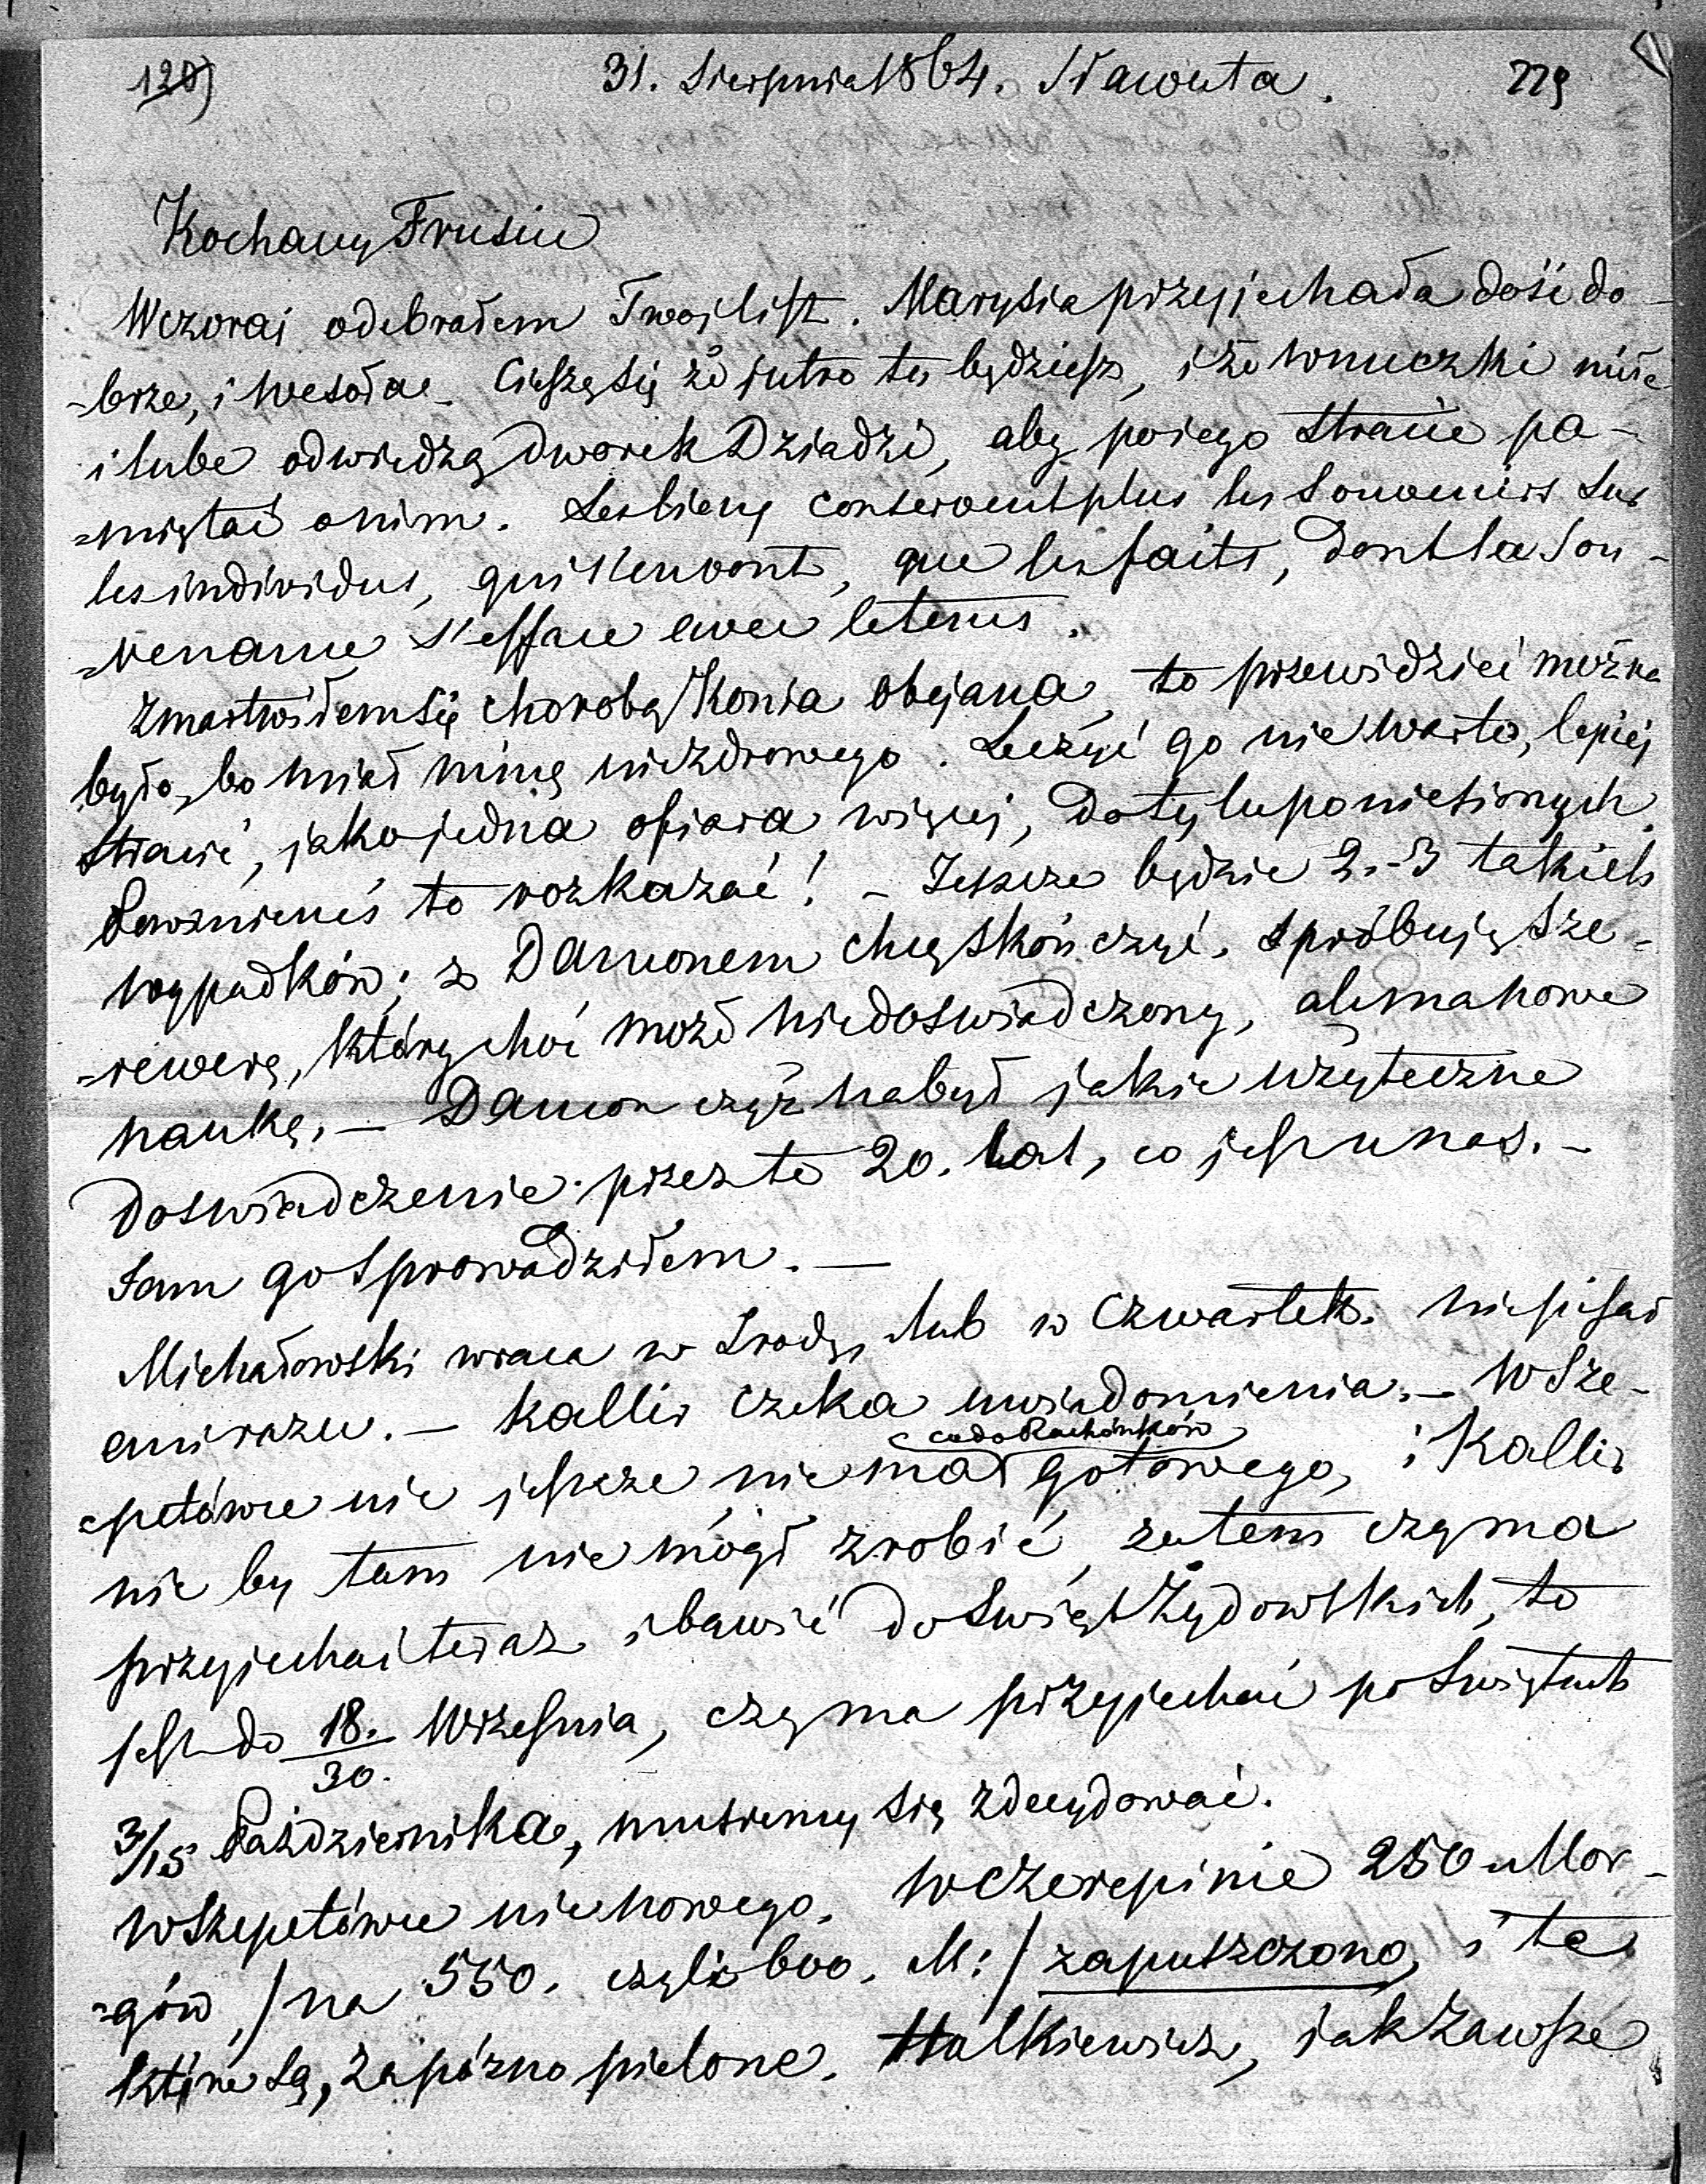 120) 31. Sierpnia 1864. Sławuta. 229
Kochany Frusiu
Wczoraj odebrałem Twoj list. Marysia przyjechała dość do-
-brze, i wesoła. Cieszę się że jutro tu będziesz, i że wnuczki miłe
i lube odwiedzą dworek Dziadzi, aby po jego stracie pa-
=miętać o nim. Les biens conservent plus les souvenirs sur
les individus, qui s'en vont, que les faits, dont la sou-
=venance s'efface avec le tems.
Zmartwiłem się chorobą Konia Obejana, to przewidzieć można
było, bo miał minę niezdrowego. Leczyć go nie warto, lepiej
stracić, jako jedna ofiara więcej, do tylu poniesionych.
Powinieneś to rozkazać! – Jeszcze będzie 2.-3 takich
wypadków; z Damonem chcę skończyć, spróbuję Sze-
=rewerę, który choć może niedoswiadczony, ale ma nowe
naukę, – Damon czyż nabył jakie użyteczne
doswiadczenie przez te 20. lat, co jest u nas. –
Sam go sprowadziłem. –
Michałowski wraca w Srodę, lub w Czwartek. nie pisał
ani razu. – Kallir czeka uwiadomienia. – W Sze-
co do Rachunków
=petówce nic jeszcze nie ma gotowego, i Kallir
nic by tam nie mógł zrobić, zatem czy ma
przyjechać teraz i bawić do Swiąt Żydowskich, to
jest do 18./30. Września, czy ma przyjechać po Swiętach
3/15 Października, musiemy się zdecydować.
W Szepetówce nic nowego. W Czerepinie 250 Mor-
=gów, /na 550. czyli 600. M:/ zapuszczono, i te
które są, zapózno pielone. Halkiewicz, jak zawsze